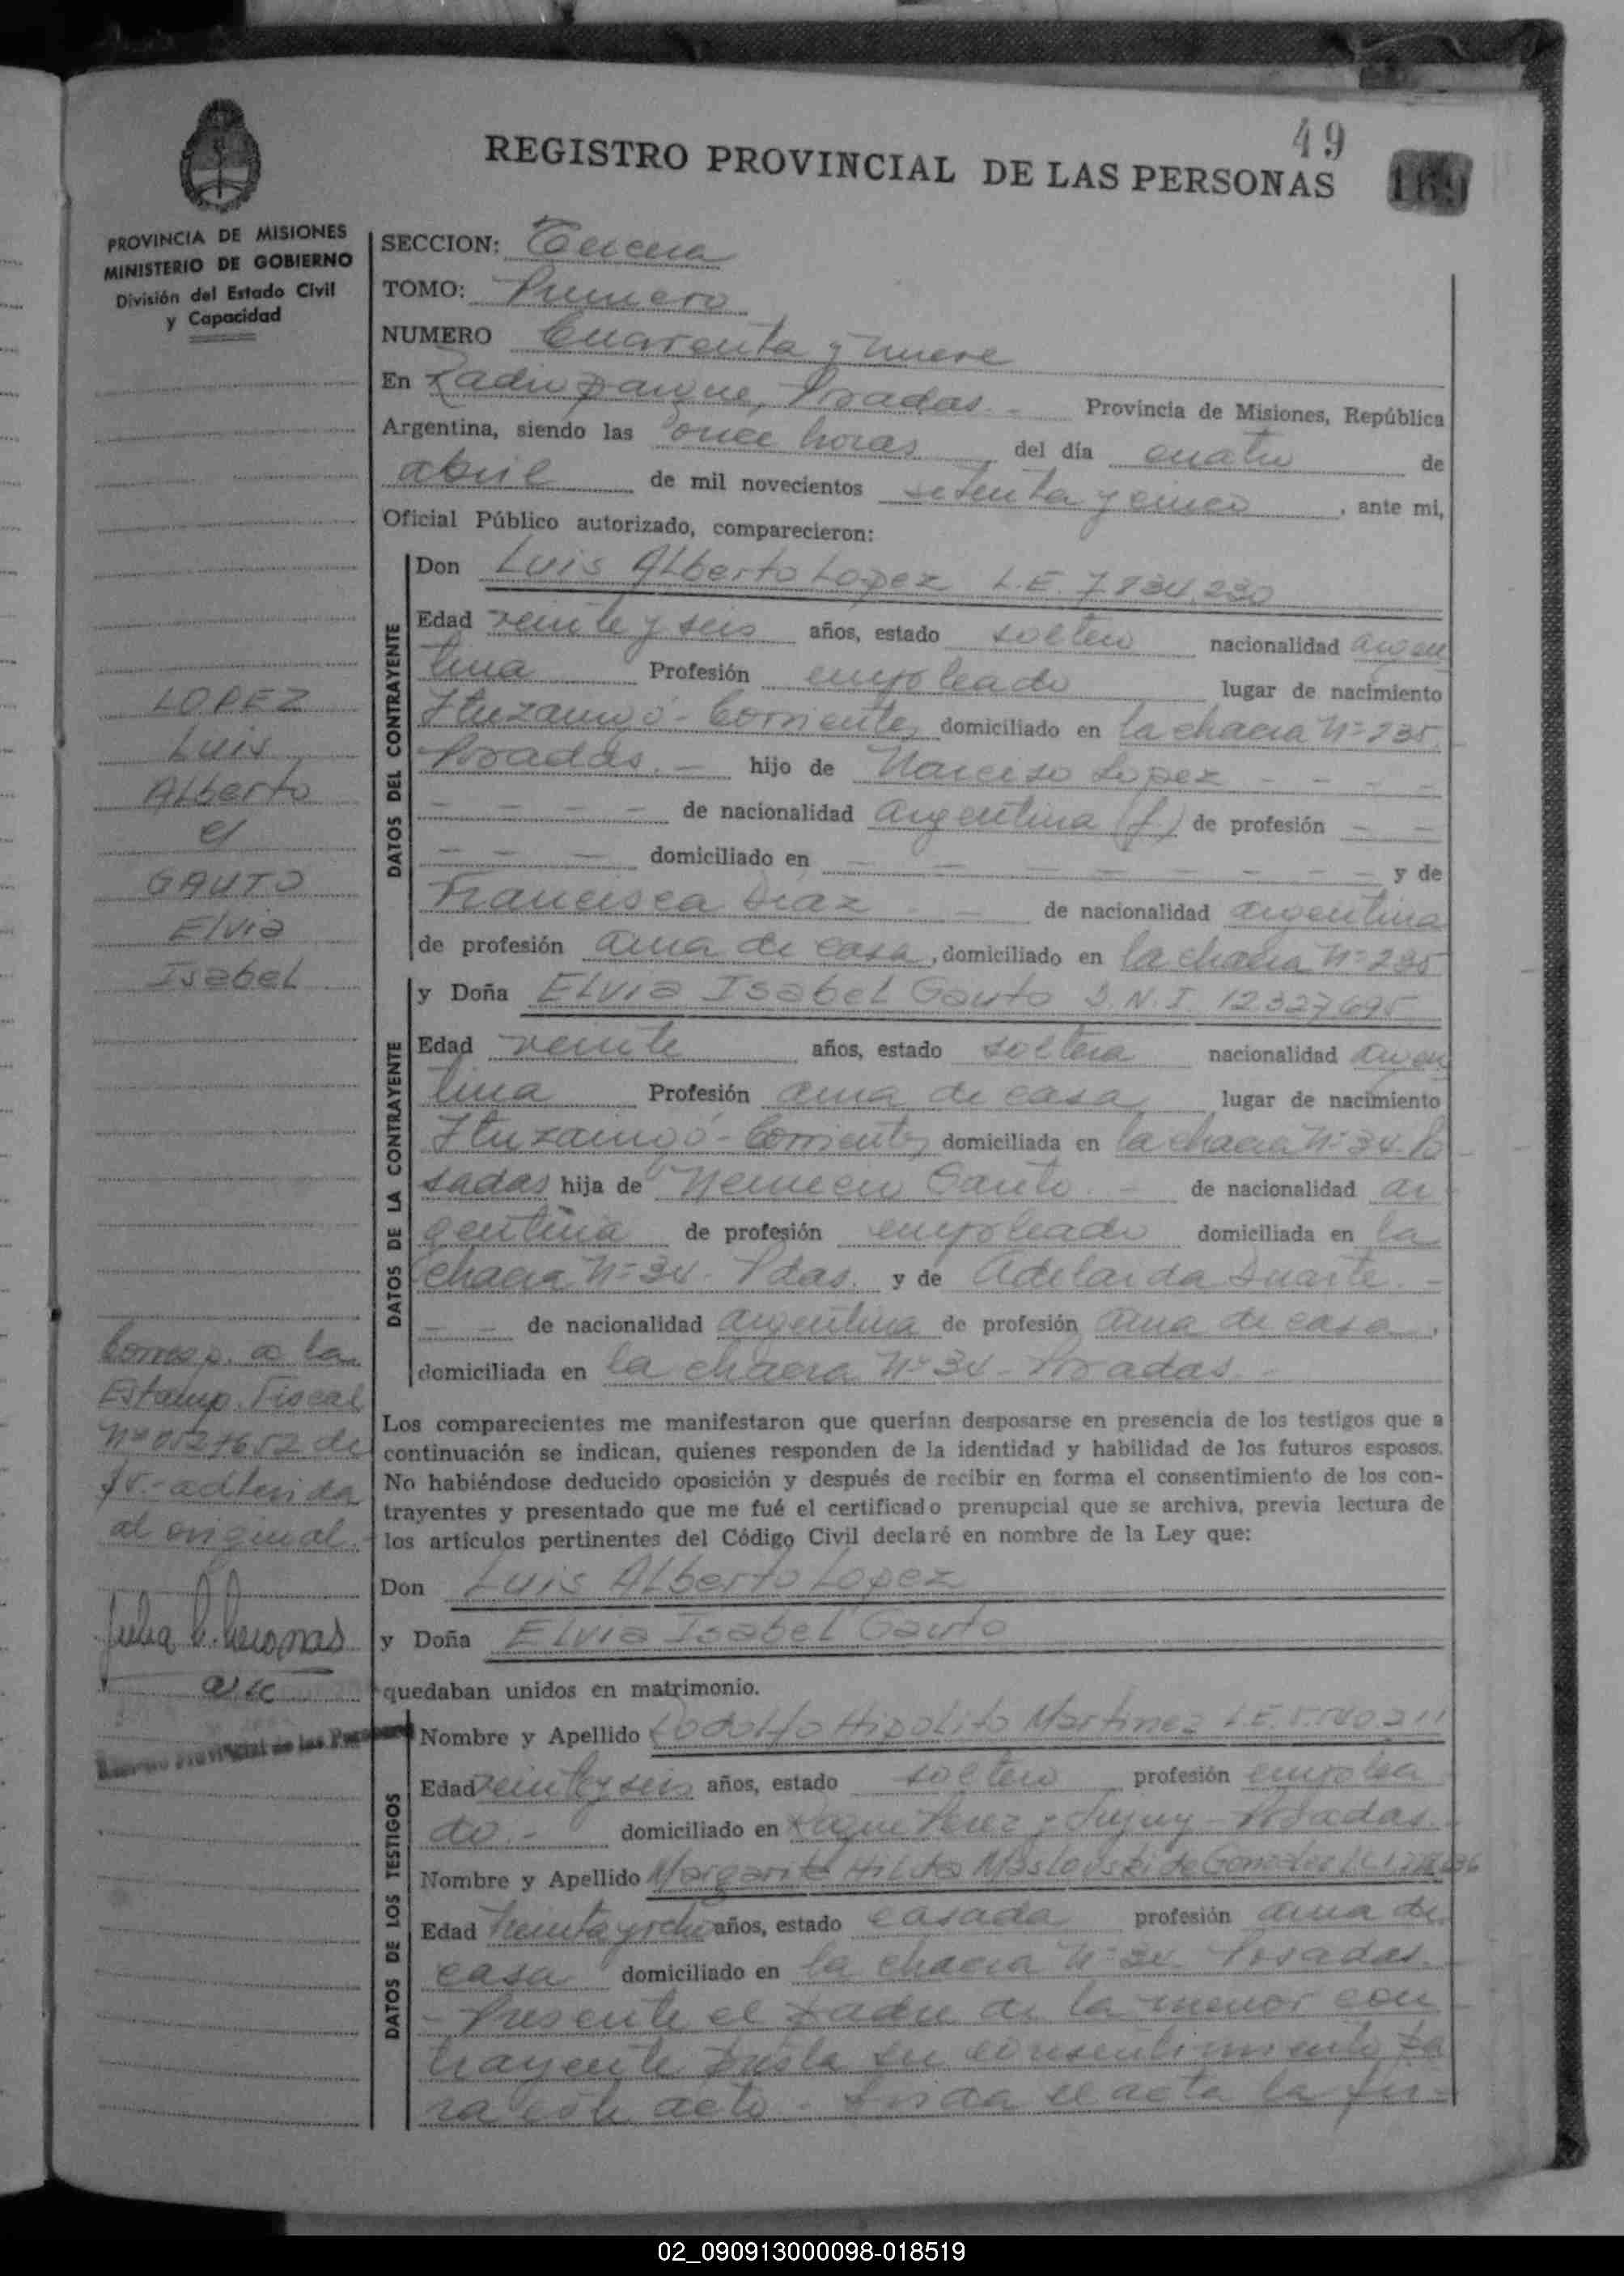 49
REGISTRO PROVINCIAL DE LAS PERSONAS
169
PROVINCIA DE MISIONES
MINISTERIO DE GOBIERNO
División del Estado Civil
y Capacidad
SECCION: Tercera
TOMO: Primero
NUMERO Cuarenta y nueve
En Radio parque, Posadas. - Provincia de Misiones, República
Argentina, siendo las once horas del día cuatro de
abril de mil novecientos setenta y cinco, ante mi,
Oficial Público autorizado, comparecieron:
DATOS DEL CONTRAYENTE
Don Luis ALberto Lopez L.E. 7.834.230
Edad veinte y seis años, estado soltero nacionalidad argen
tina Profesión empleado lugar de nacimiento
Ituzaingó - Corrientes domiciliado en la chacra Nº 235.
Posadas. - hijo de Narciso Lopez - - - -
- - - - de nacionalidad argentina (f) de profesión - -
- - - domiciliado en - - - - - - - y de
Francisca Diaz - - de nacionalidad argentina
de profesión ama de casa, domiciliado en la chacra Nº 235
LOPEZ
Luis
ALberto
el
GAUTO
Elvia
IsabeL
DATOS DE LA CONTRAYENTE
y Doña ELvia IsabeL Gauto D.N.I. 12.327.695
Edad veinte años, estado soltera nacionalidad argen
tina Profesión ama de casa lugar de nacimiento
Ituzaingó - Corrientes domiciliada en la chacra Nº 34. Po
sadas hija de Nemecio Gauto. - de nacionalidad ar
gentina de profesión empleado domiciliada en la
chacra Nº 34. Pdas. y de Adelaida Duarte. -
- - de nacionalidad argentina de profesión ama de casa.
domiciliada en la chacra Nº 34 - Posadas. -
Los comparecientes me manifestaron que querían desposarse en presencia de los testigos que a
continuación se indican, quienes responden de la identidad y habilidad de los futuros esposos.
No habiéndose deducido oposición y después de recibir en forma el consentimiento de los con-
trayentes y presentado que me fué el certificado prenupcial que se archiva, previa lectura de
los artículos pertinentes del Código Civil declaré en nombre de la Ley que:
Corresp. a la
Estamp. Fiscal
de
adherida
al original.
Don Luis ALberto Lopez
y Doña Elvia IsabeL Gauto
quedaban unidos en matrimonio.
Registro Provincial de las Personas
DATOS DE LOS TESTIGOS
Nombre y Apellido RodoLfo HipoLito Martinez L.E.
Edad veinte y seis años, estado soltero profesión emplea
do. - domiciliado en Roque Perez y Jujuy - Posadas.
Nombre y Apellido Margarita HiLda de Gonzalez
Edad treinta y ocho años, estado casada profesión ama de
casa domiciliado en la chacra Nº 34. Posadas.
- Presente el padre de la menor con
trayente presta su consentimiento pa
ra este acto. - Leida el acta la fir-
02_090913000098-018519